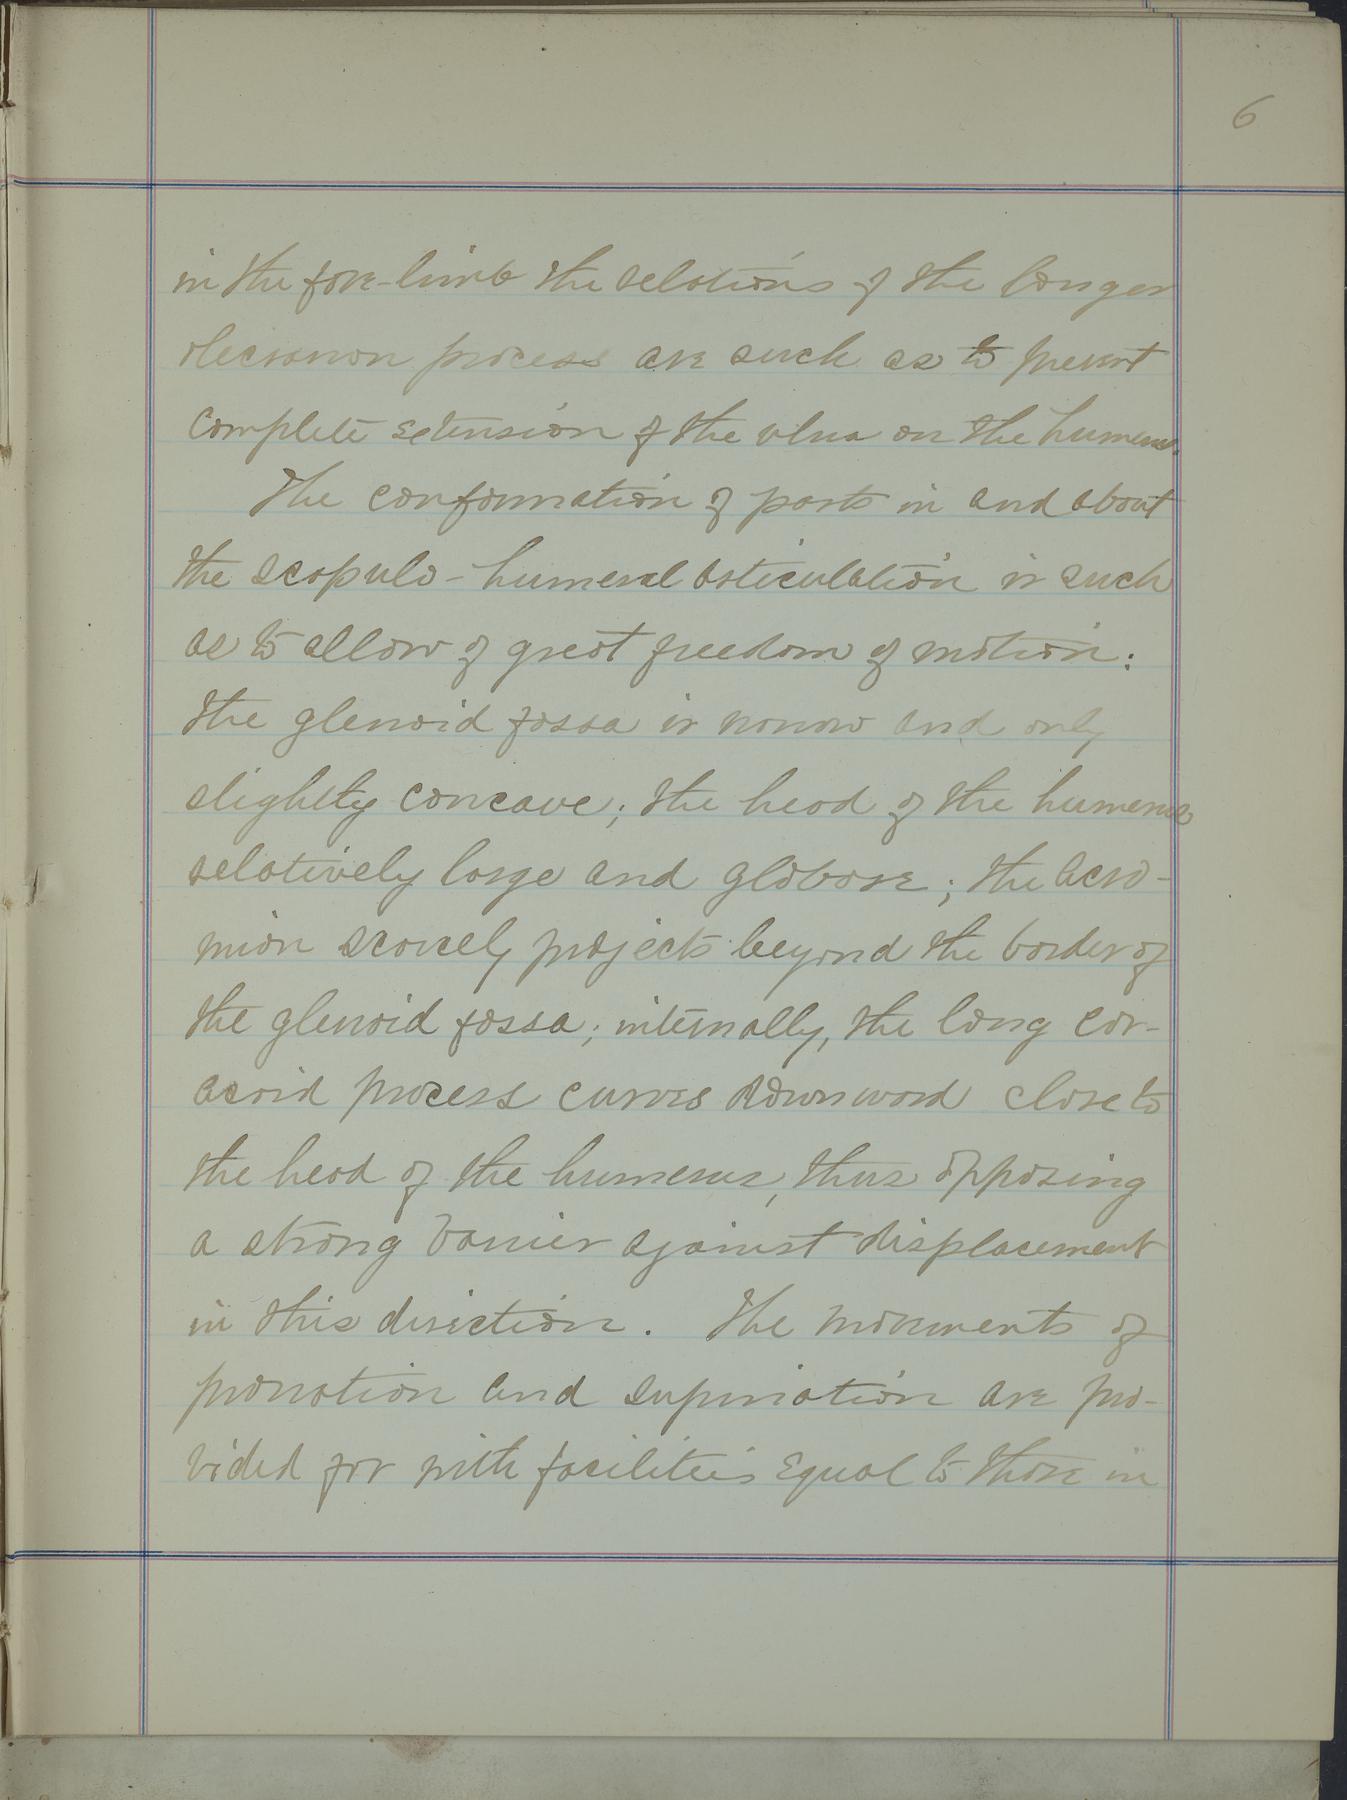 6
in the fore-limb the relations of the longer
olecranon process are such as to prevent
complete extension of the ulna on the humerus.
The conformation of parts in and about
the scapulo-humeral articulation is such
as to allow of great freedom of motion:
the glenoid fossa is narrow and only
slightly concave; the head of the humerus
relatively large and globose; the acro-
mion scarcely projects beyond the border of
the glenoid fossa; internally, the long cor-
acoid process curves downward close to
the head of the humerus, thus opposing
a strong barrier against displacement
in this direction. The movements of
pronation and supination are pro-
vided for with facilities equal to those in